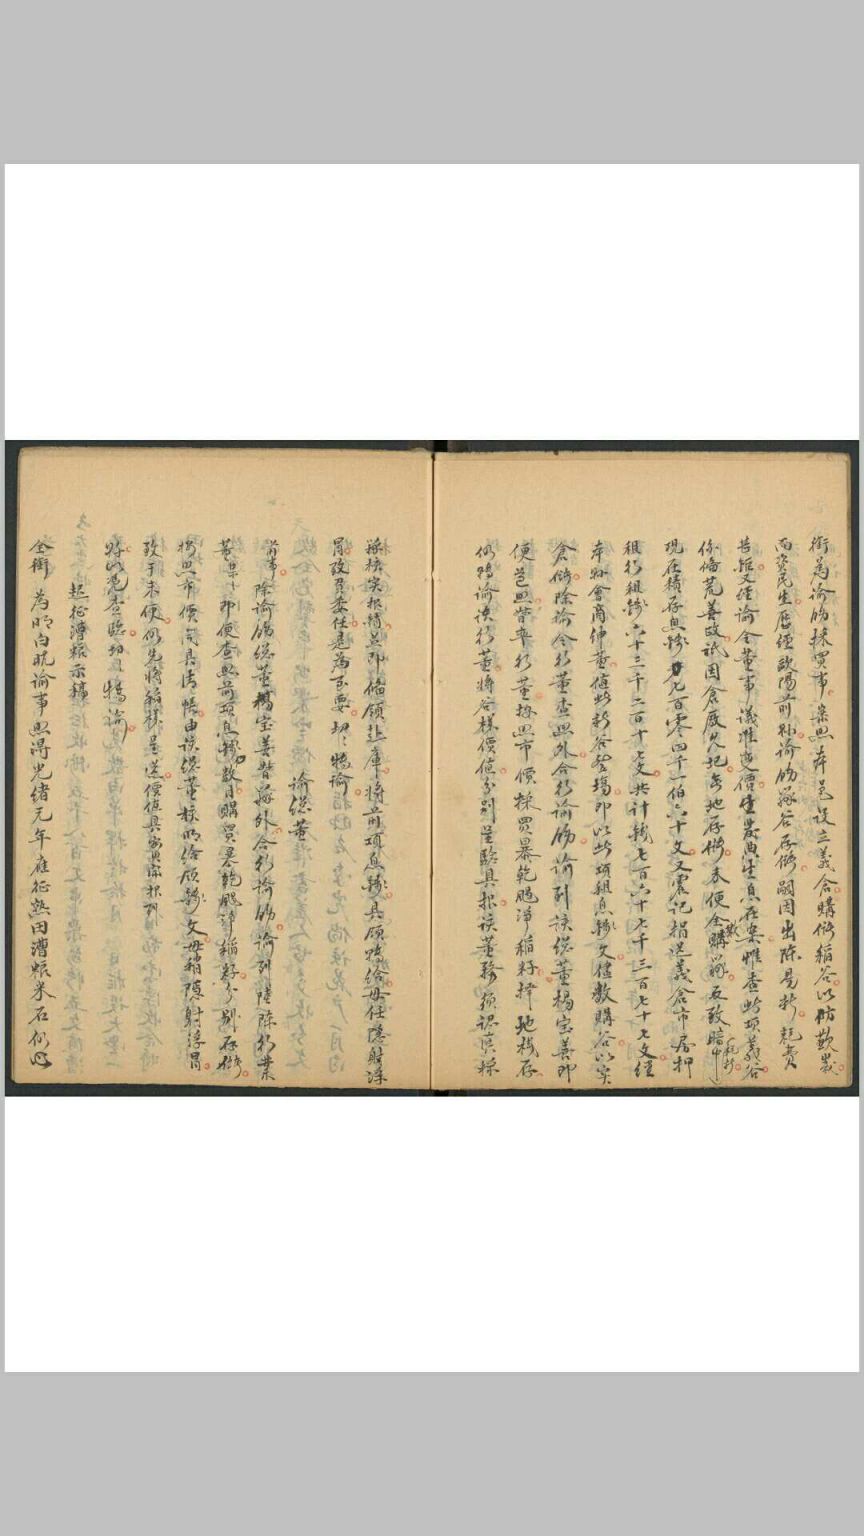 銜為諭飭採買事案照本邑設立義倉購儲稻谷以防歉歲
而資民生歷經歐陽前縣諭飭縣谷存儲嗣因出陳易新耗費
甚鉅又經諭令董事議准變價生息在案惟查此項義谷
係備荒善政祇因倉廒圮無地存儲未便全數購縣反致暗中耗折
現在積存息錢七百零四千一伯六十文又震記捐送義倉市房押
租折租錢六十三千二百十七文共計錢七百六十七千三百七十七文經
本縣會商紳董值此新谷登場即以此項租息錢文儘數購谷以實
倉儲除諭令新董查照外合行諭飭諭到該總董楊宝善即
便邑照常率新董按照市價採買暴乾颺淨稻籽擇地棧存
仍將諭該新董將谷樣價值分別呈驗具報該董務須認真採
採核实报繕並即備領赴庫將前項息錢具領毋任隱射浮
冒致負委任是為至要切切特諭
諭總董
前事除諭飭總董楊宝善督縣外合行諭飭諭到陸陳行業
董某某即便查照前項息錢數目購買暴乾颺淨稻籽分別存儲
按照市價開具清帳由該總董核明給領錢文毋稍隱射浮冒
致干未便仍先將稻樣呈送價值具報
聽候查驗切切特諭
起征漕糧示稿
全銜 為明白曉諭事照得光緒元年應征熟田漕粮米石仍